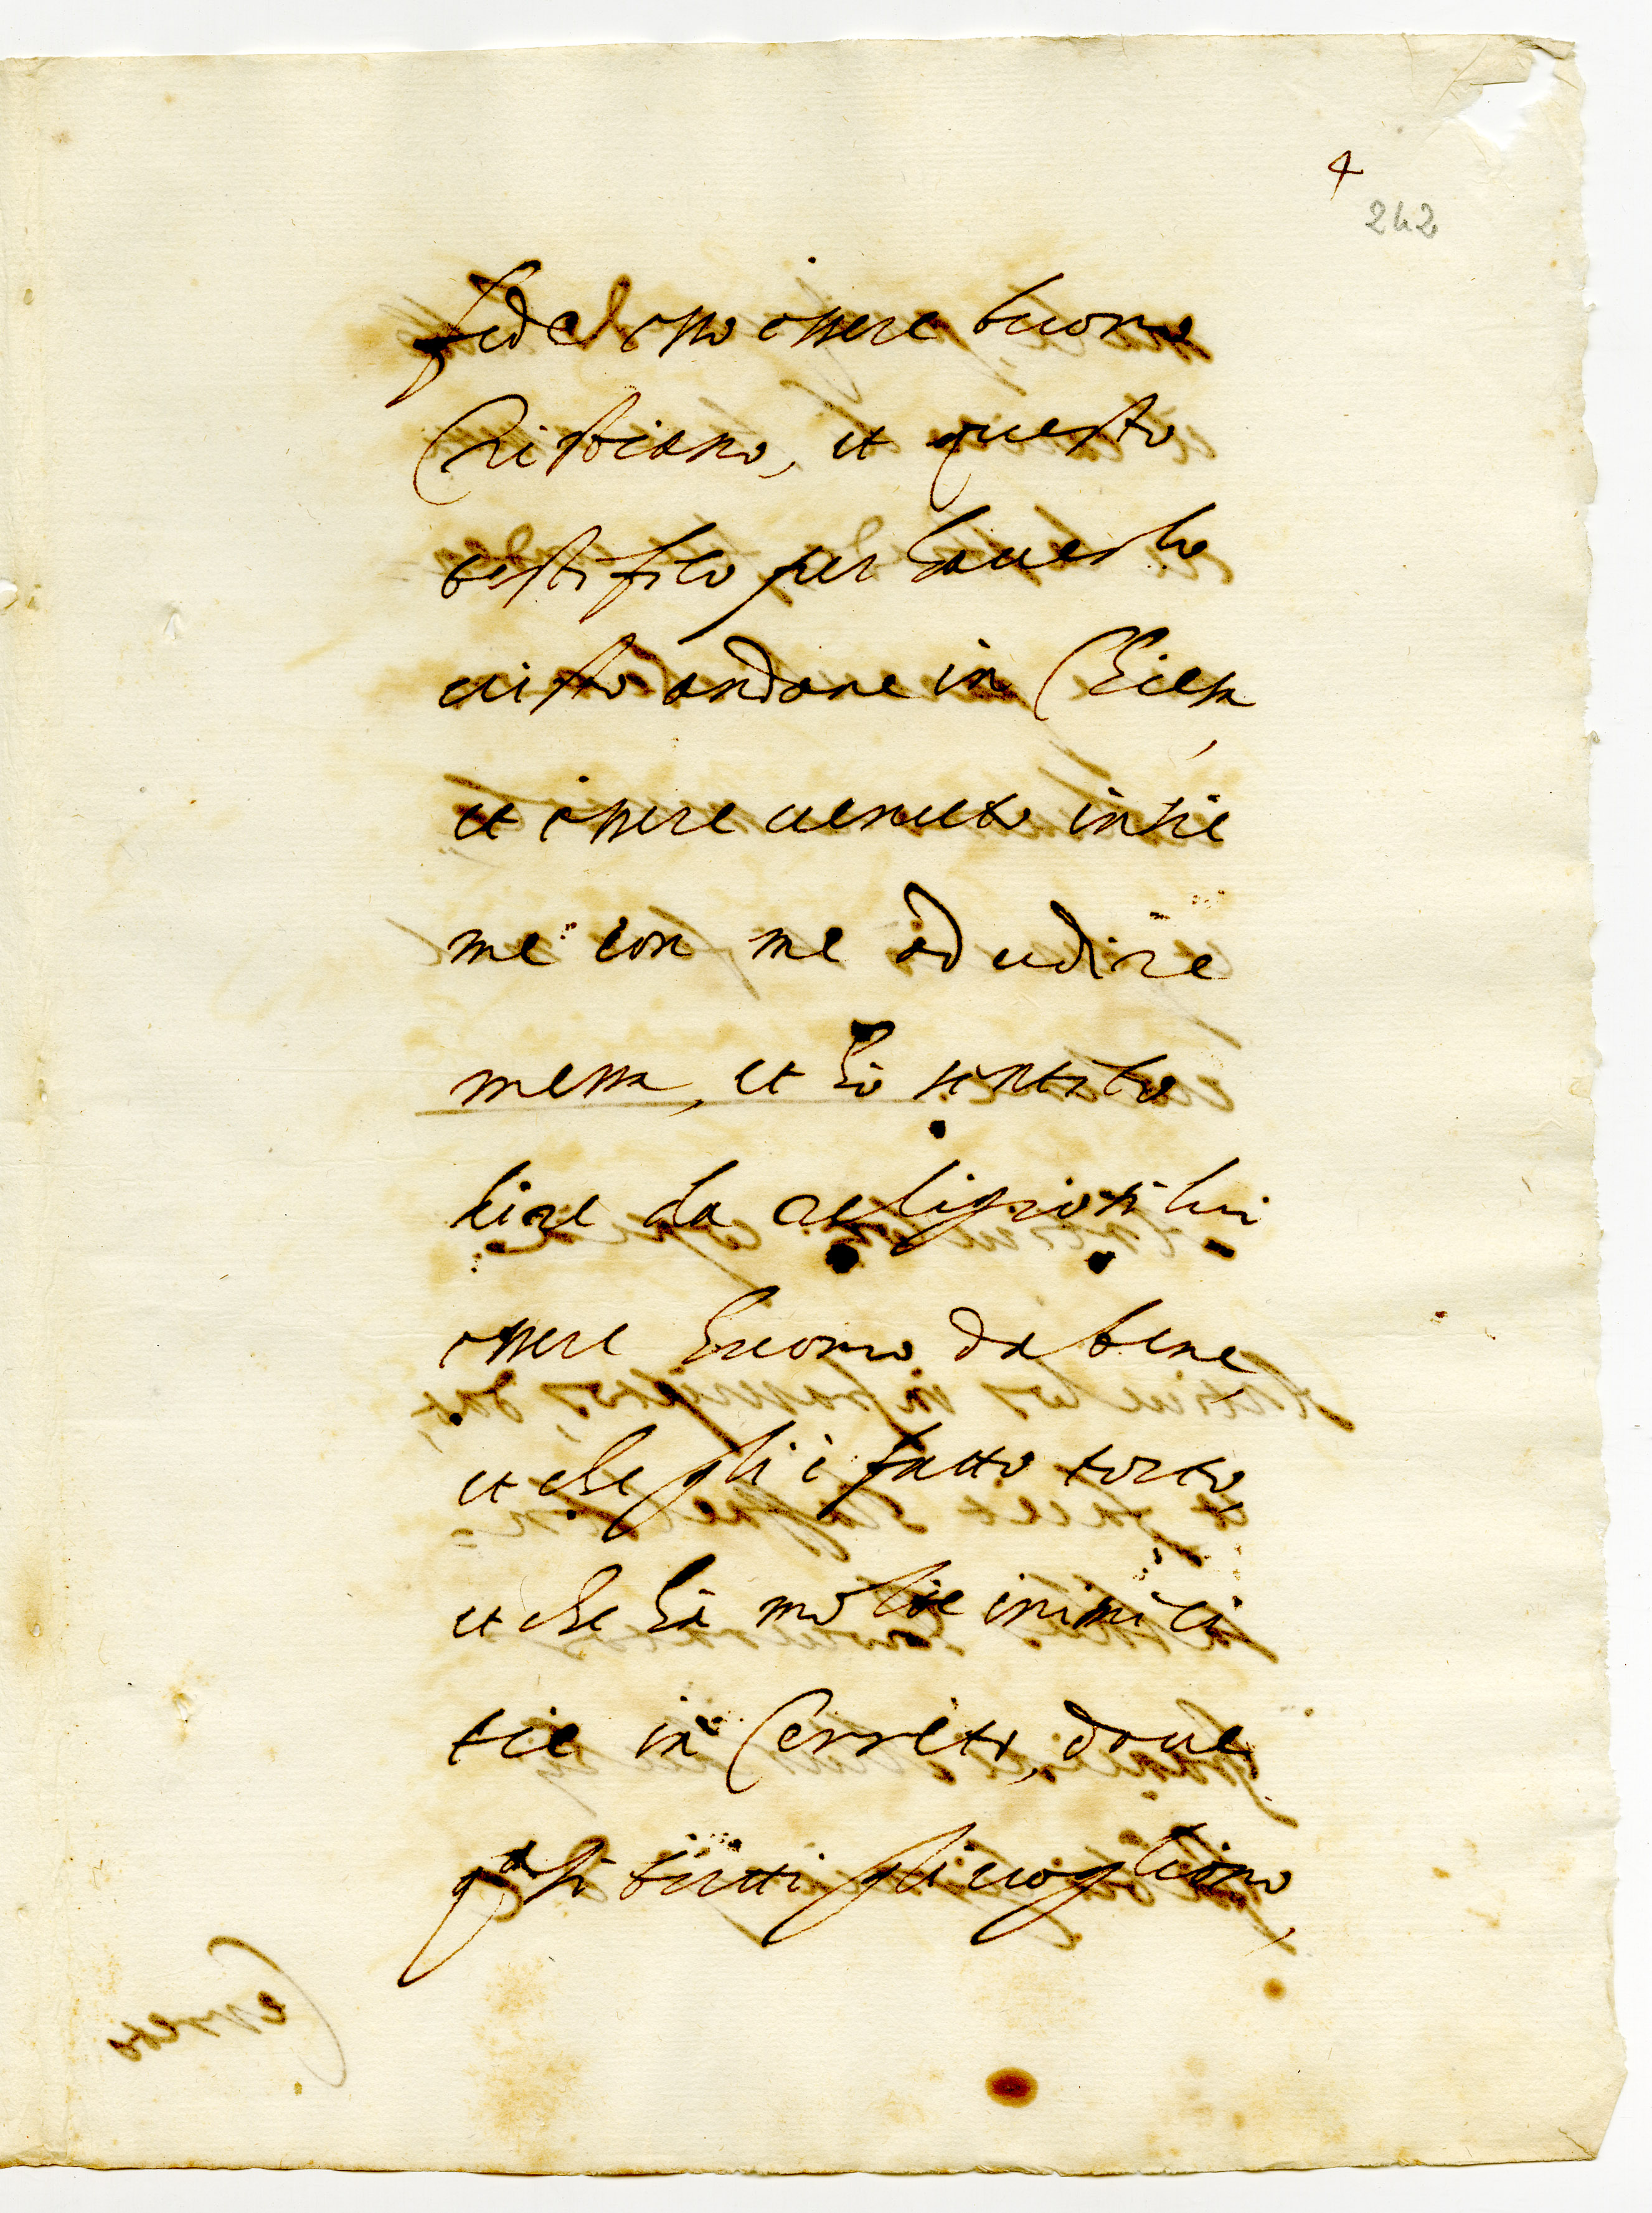 4
242
fede esso essere buono
Cristiano, et questo
testifico per haverlo
visto andare in Chiesa,
et essere venuto insie
me con me ad udire
messa, et hò sentito
dire da religiosi lui
essere huomo da bene
et che gli è fatto torto,
et che hà molte inimici
tie in Cerreto, dove
quasi tutti gli vogliono,